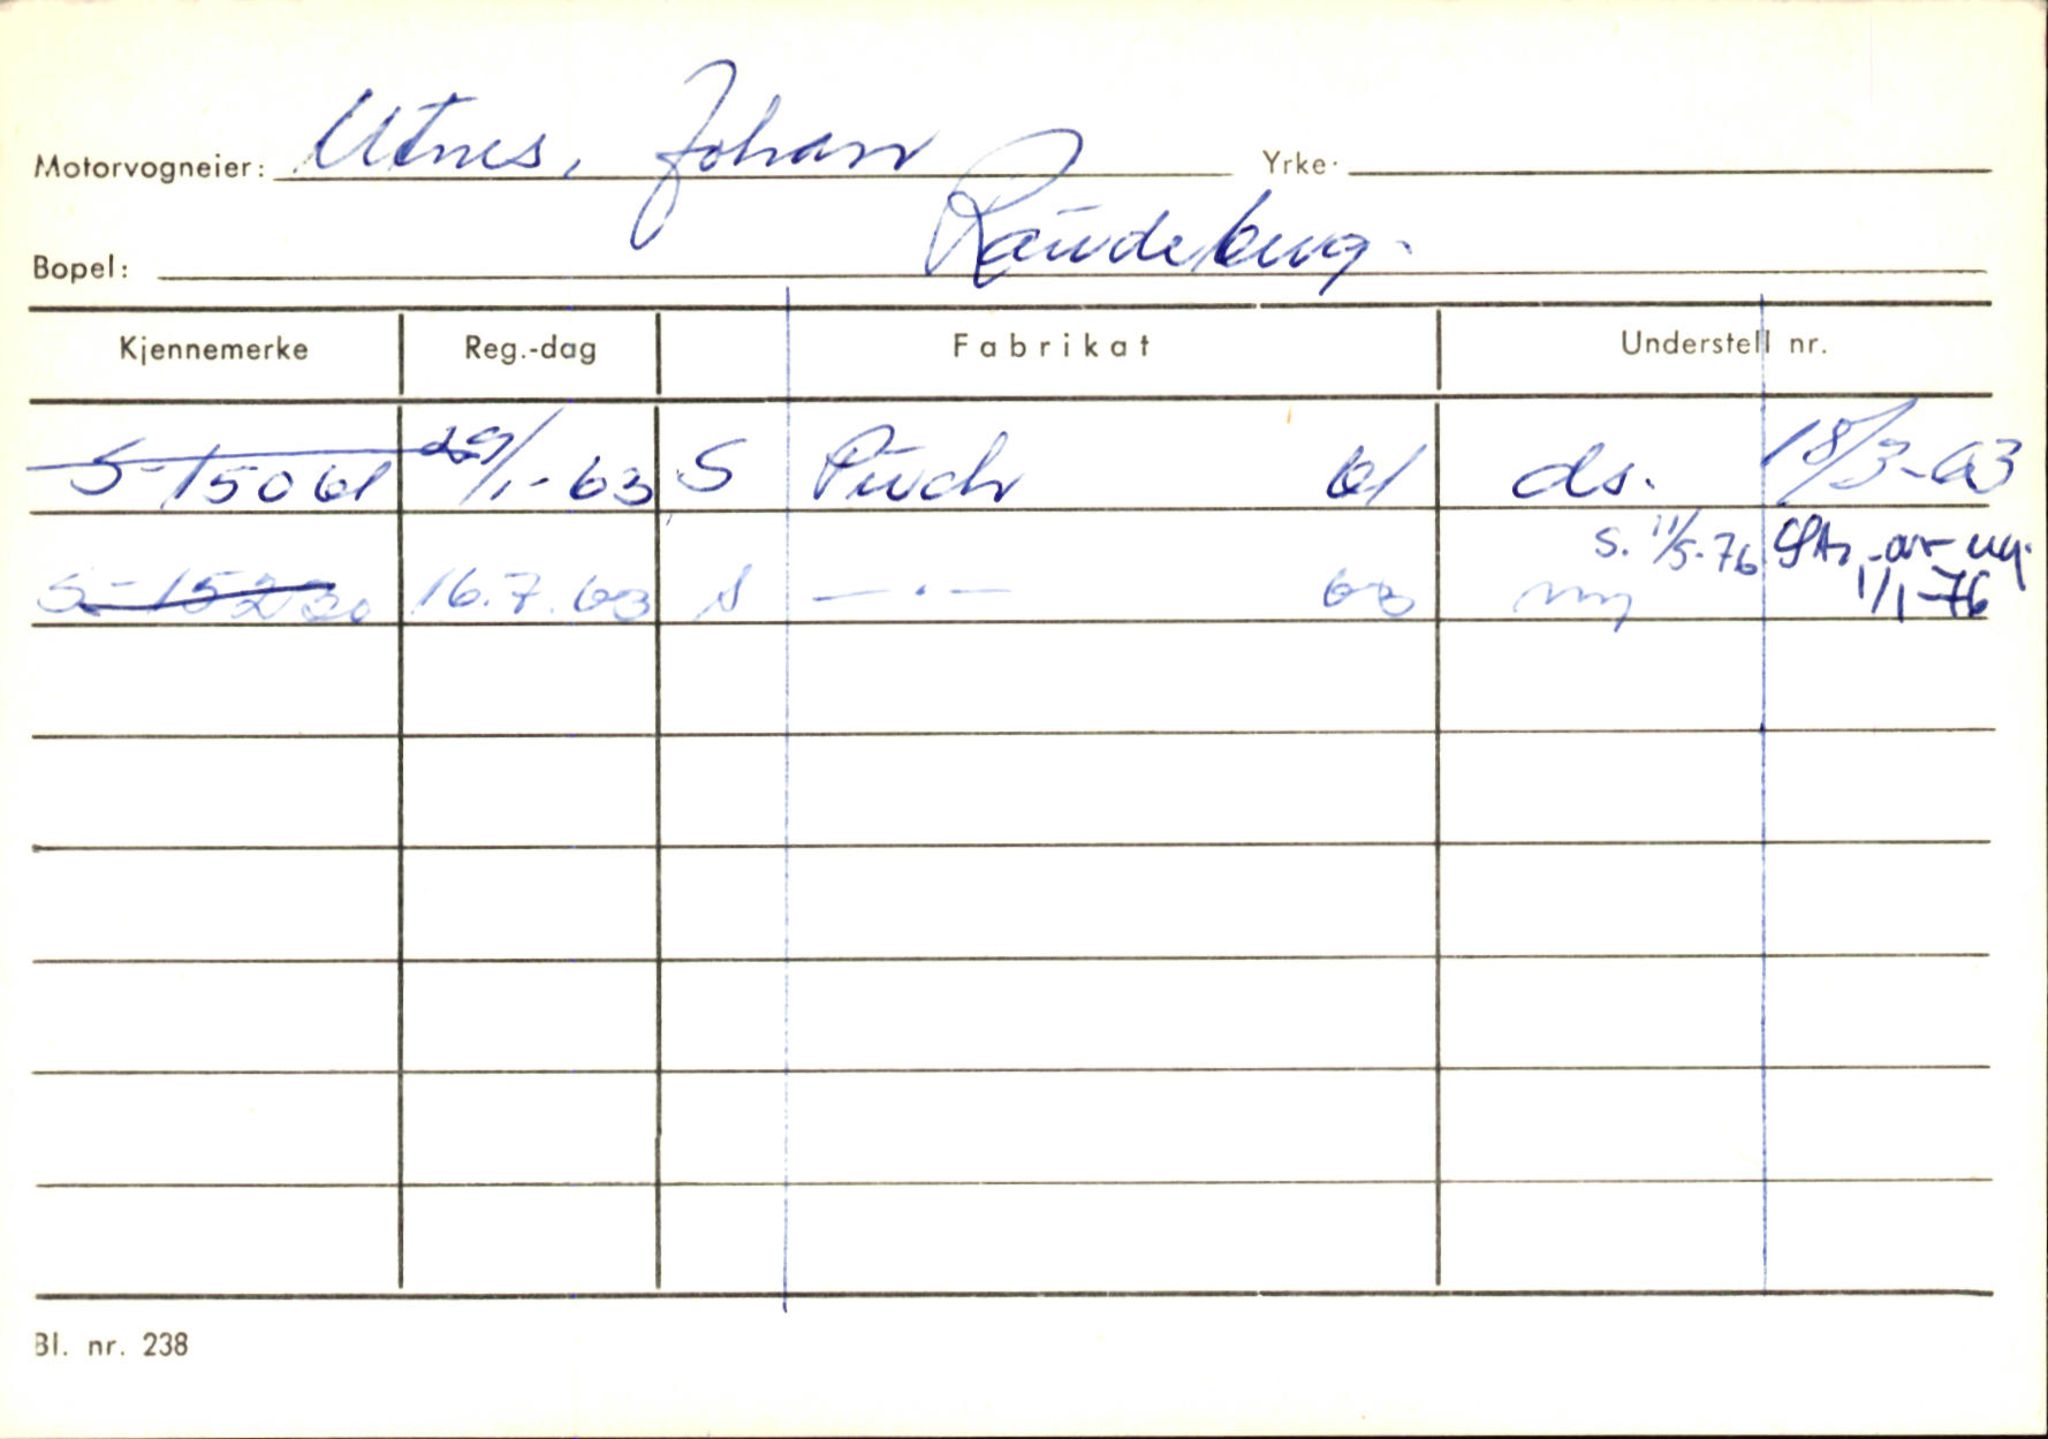 Motorvogneier: Utnes, Johan Yrke:
Bopel: Raudeberg.
Kjennemerke Reg.-dag Fabrikat Understell nr.
S-15061 29/1-63 S Puch 61 ds. 18/3-63
s. 11/5-76 Str. av reg.
S-15230 16.7.63 S — · — 63 ny 1/1-76
Bl. nr. 238